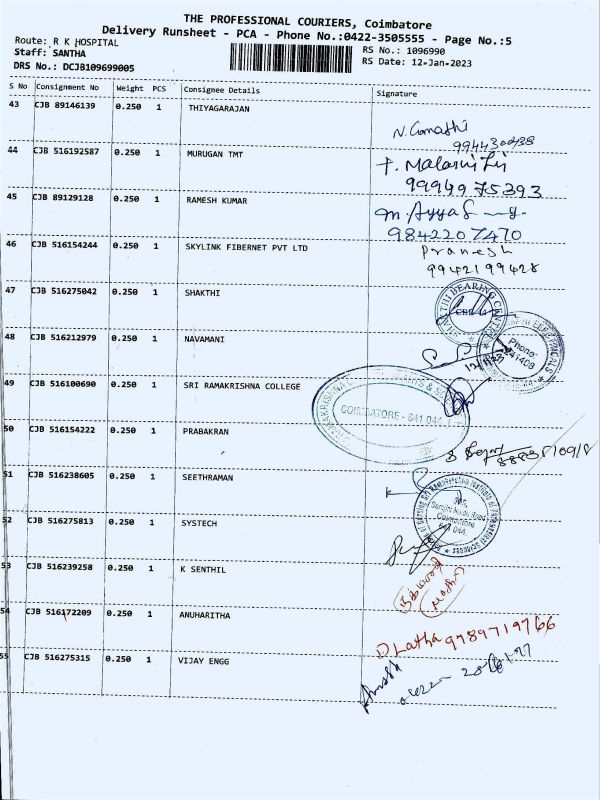 THE PROFESSIONAL COURIERS, Coimbatore
Delivery Runsheet - PCA - Phone No.:0422-3505555 - Page No.:5
Route: R K HOSPITAL
RS No.: 1096990
Staff: SANTHA
RS Date: 12-Jan-2023
DRS No.: DCJB109699005
S No Consignment No Weight PCS Consignee Details Signature
43 CJB 89146139 0.250 1 THIYAGARAJAN
9944300438
44 CJB 516192587 0.250 1 MURUGAN TMT
9994975393
45 CJB 89129128 0.250 1 RAMESH KUMAR
9842207470
46 CJB 516154244 0.250 1 SKYLINK FIBERNET PVT LTD
Pranesh
9942199428
47 CJB 516275042 0.250 1 SHAKTHI
SHAKTHI BEARING CENTRE
48 CJB 516212979 0.250 1 NAVAMANI
Phone:
49 CJB 516100690 0.250 1 SRI RAMAKRISHNA COLLEGE
COIMBATORE - 641 044
50 CJB 516154222 0.250 1 PRABAKRAN
51 CJB 516238605 0.250 1 SEETHRAMAN
52 CJB 516275813 0.250 1 SYSTECH
53 CJB 516239258 0.250 1 K SENTHIL
54 CJB 516172209 0.250 1 ANUHARITHA
Latha 9789719766
55 CJB 516275315 0.250 1 VIJAY ENGG